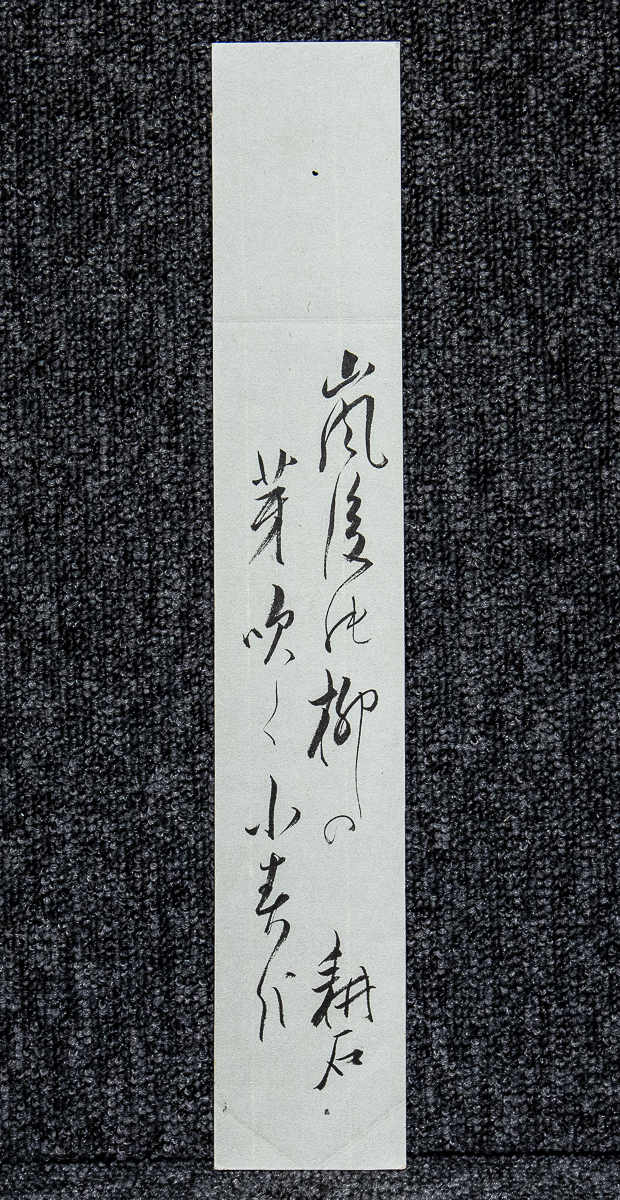 嵐後の柳の
芽吹く小春
耕石